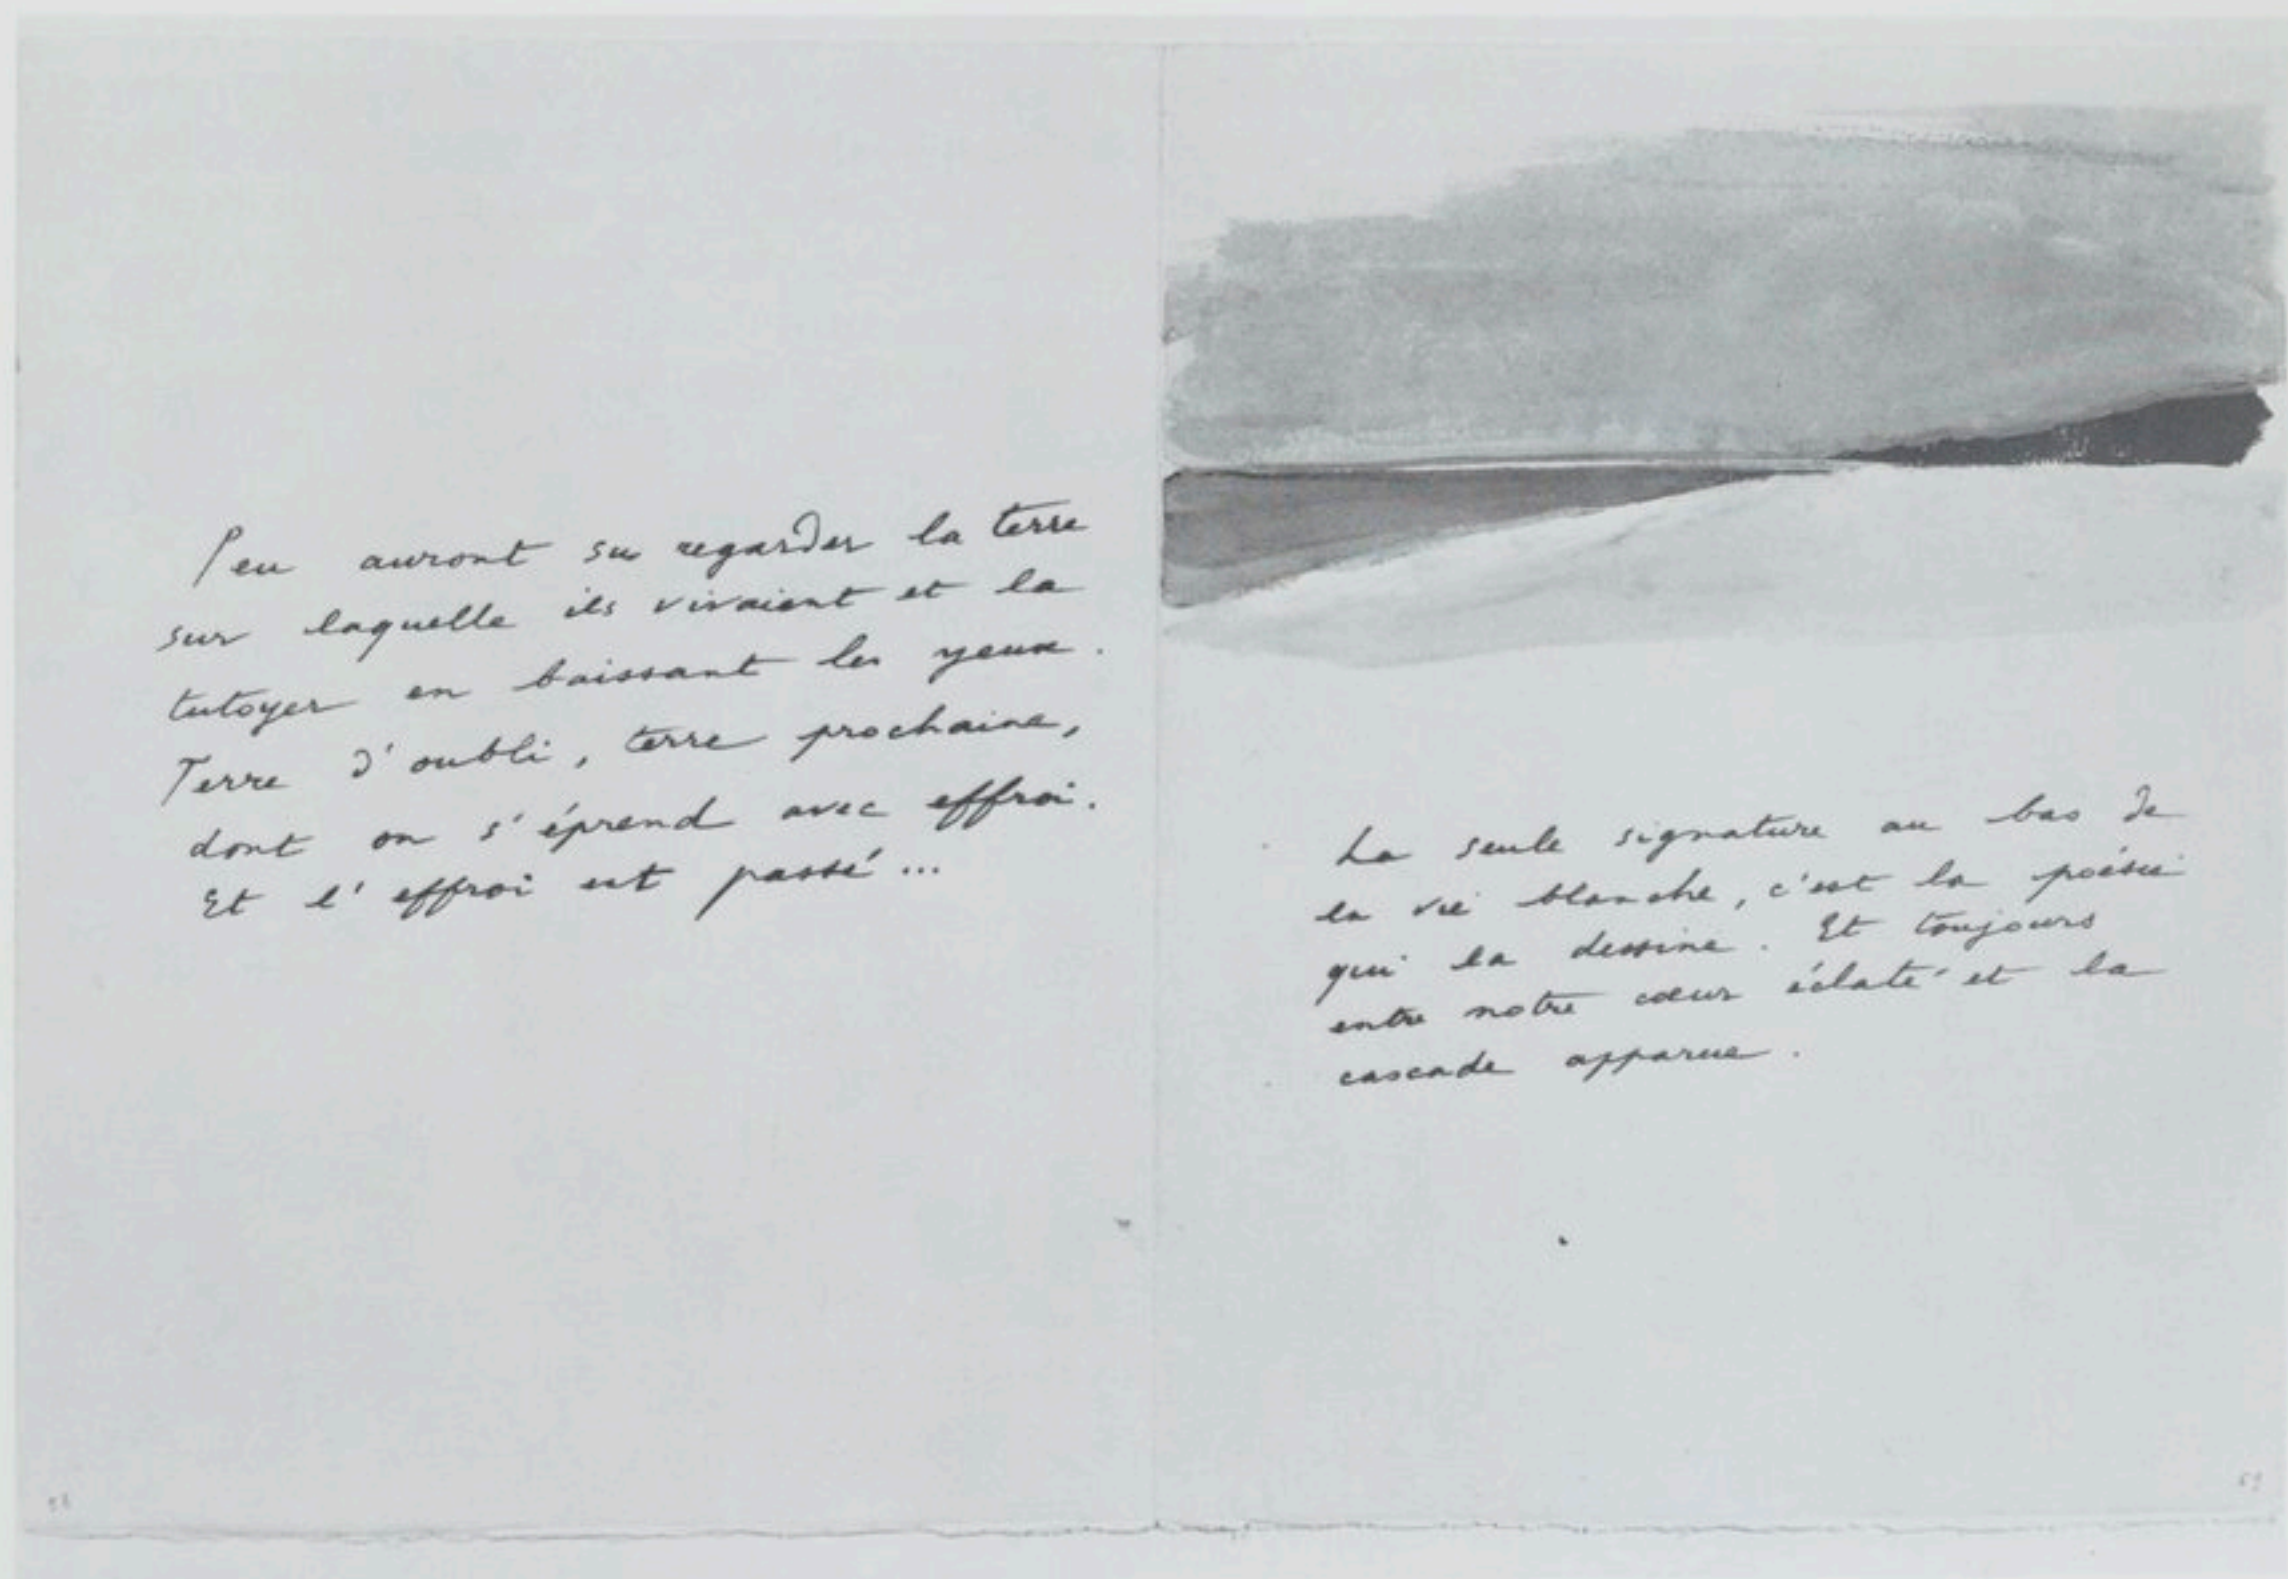 Peu auront su regarder la terre
sur laquelle ils vivaient et la
tutoyer en baissant les yeux.
Terre d'oubli, terre prochaine,
dont on s'éprend avec effroi.
Et l'effroi est passé...
La seule signature au bas de
la vie blanche, c'est la poésie
qui la dessine. Et toujours
entre notre cœur éclaté et la
cascade apparue.